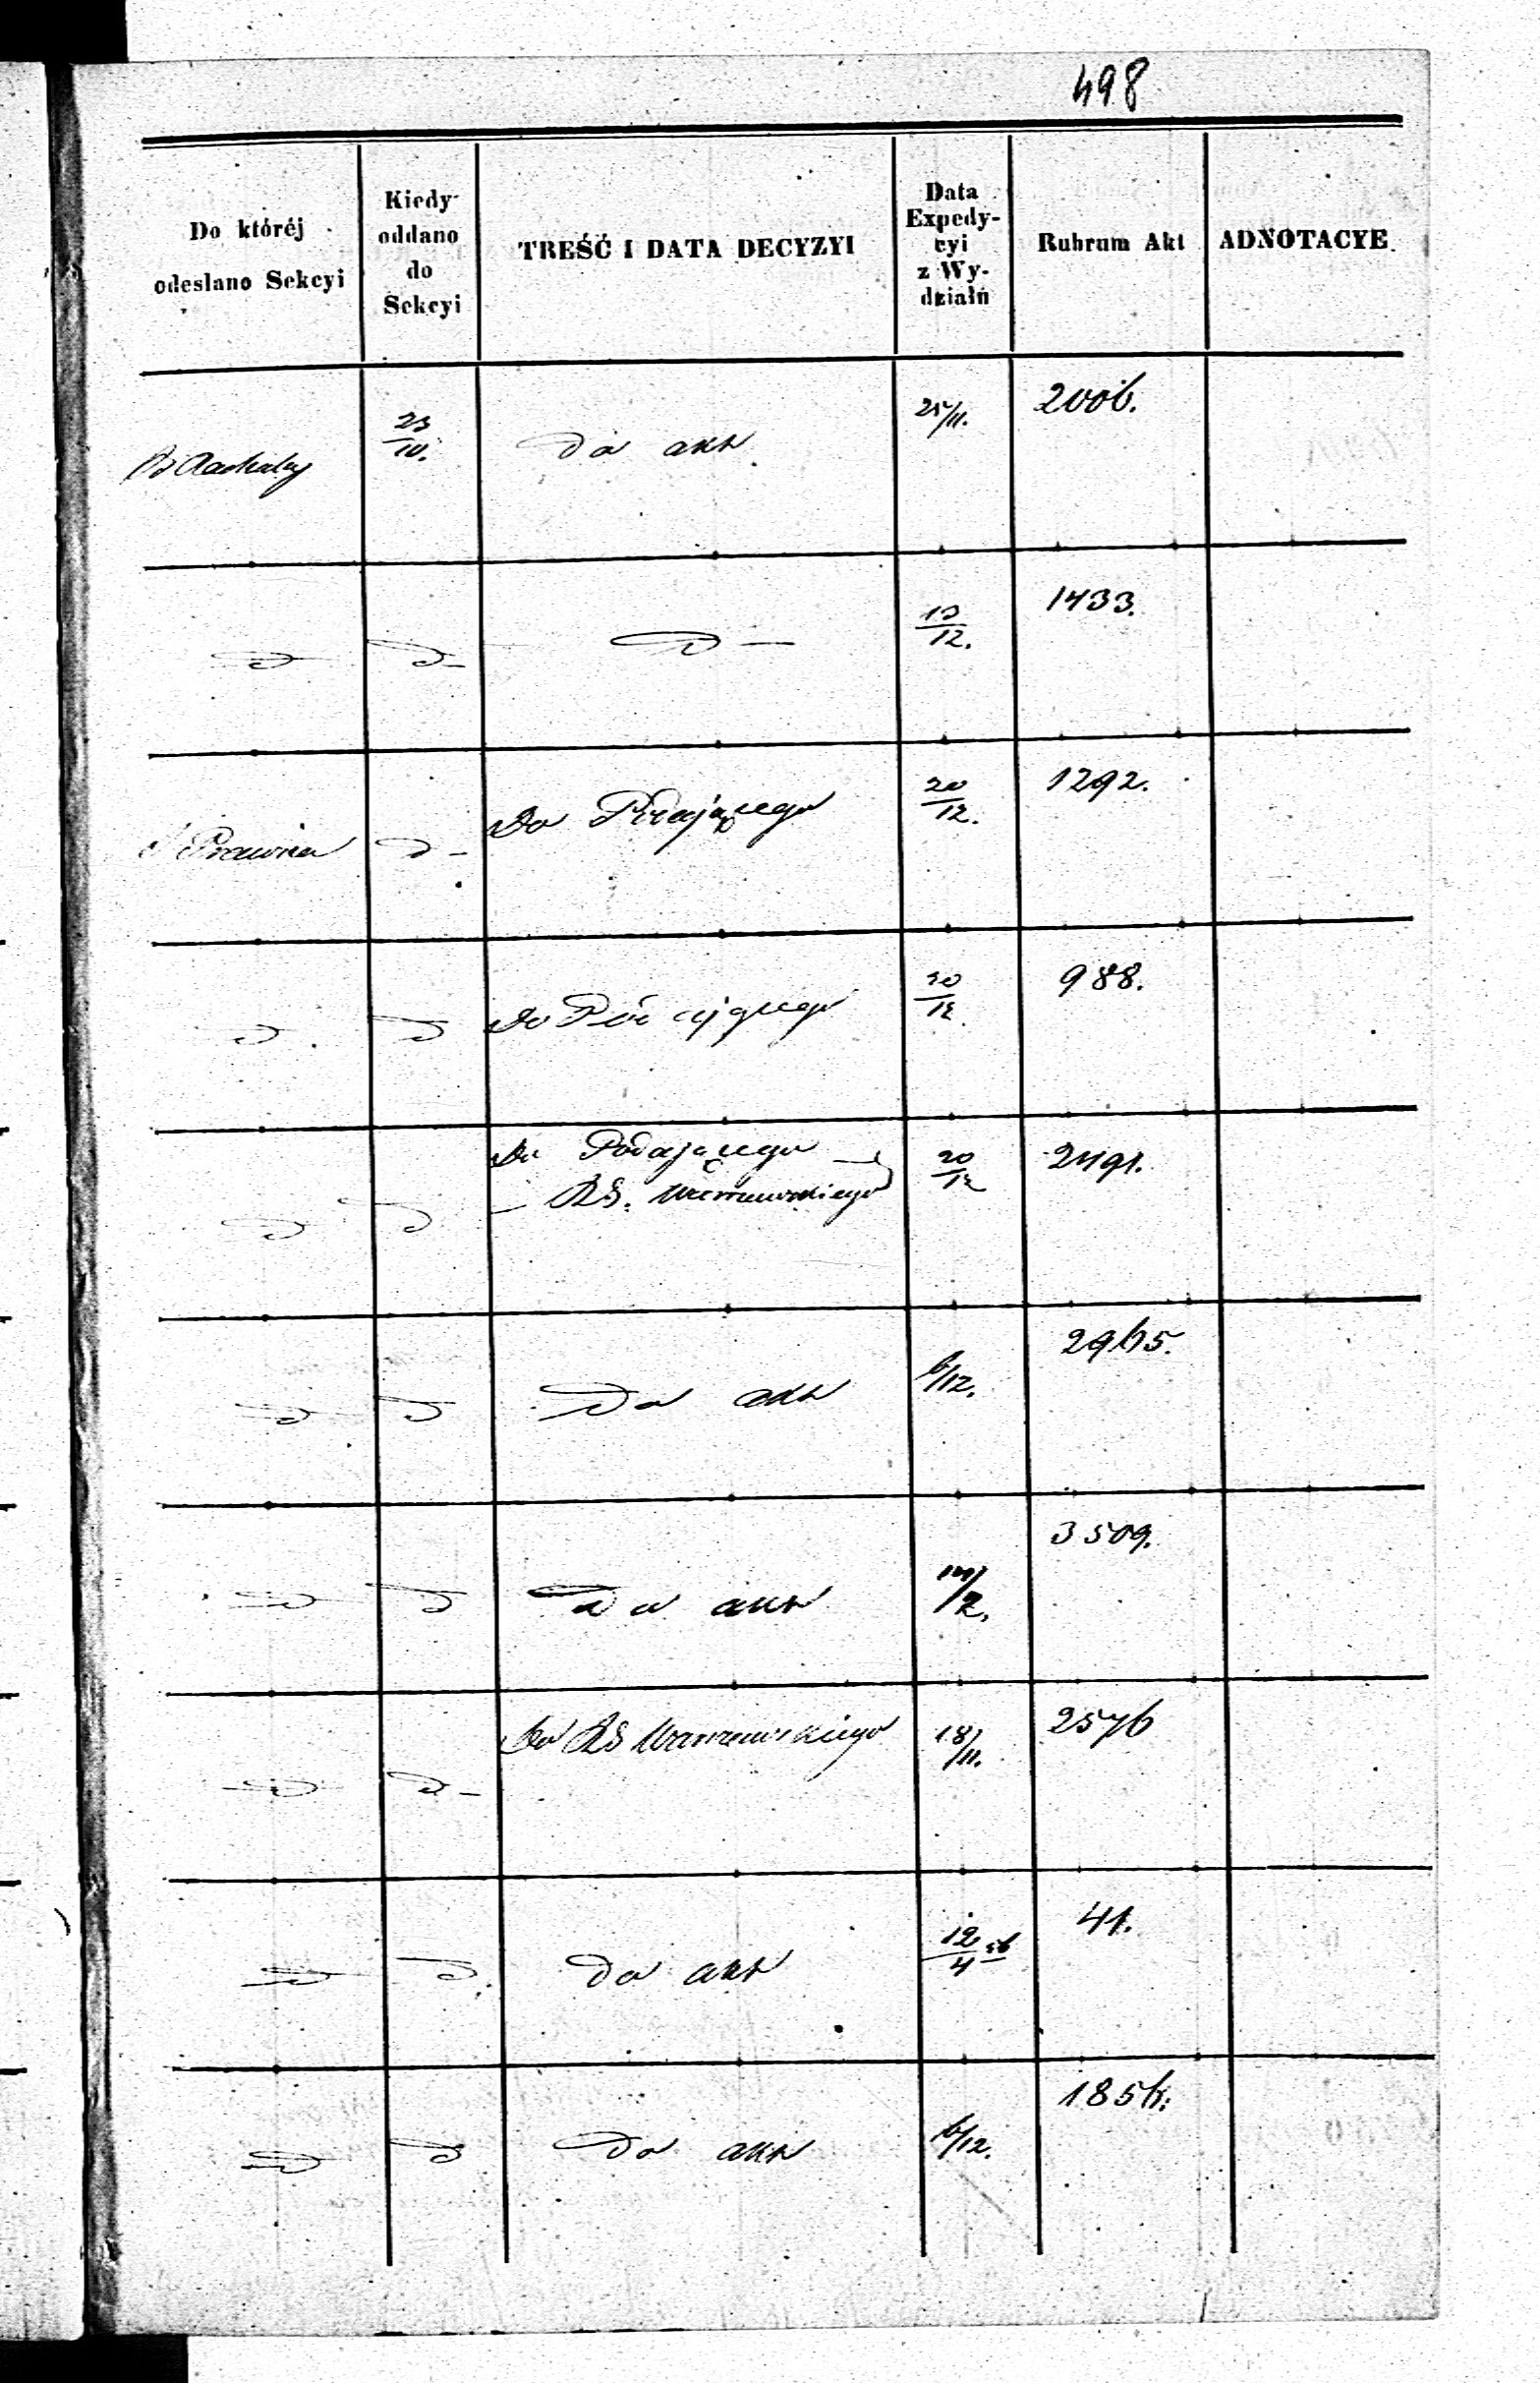 498
Do któréj odesłano Sekcyi
Kiedy oddano do Sekcyi
TREŚĆ I DATA DECYZYI
Data Expedycyi z Wydziału
Rubrum Akt
ADNOTACYE
23/10. Do akt 25/11. 2006.
D D D 13/12. 1433.
Prawna D Do Podającego 20/12. 1292.
D D Do Podającego 20/12 988.
D D Do Podającego 20/12 2491.
R.G. Warszawskiego
D D Do akt 6/12. 2965.
D D Do akt 3509.
D D Do RG Warszawskiego 18/11. 2576
D D Do akt 12/4 56 41.
D D Do akt 6/12. 1854.